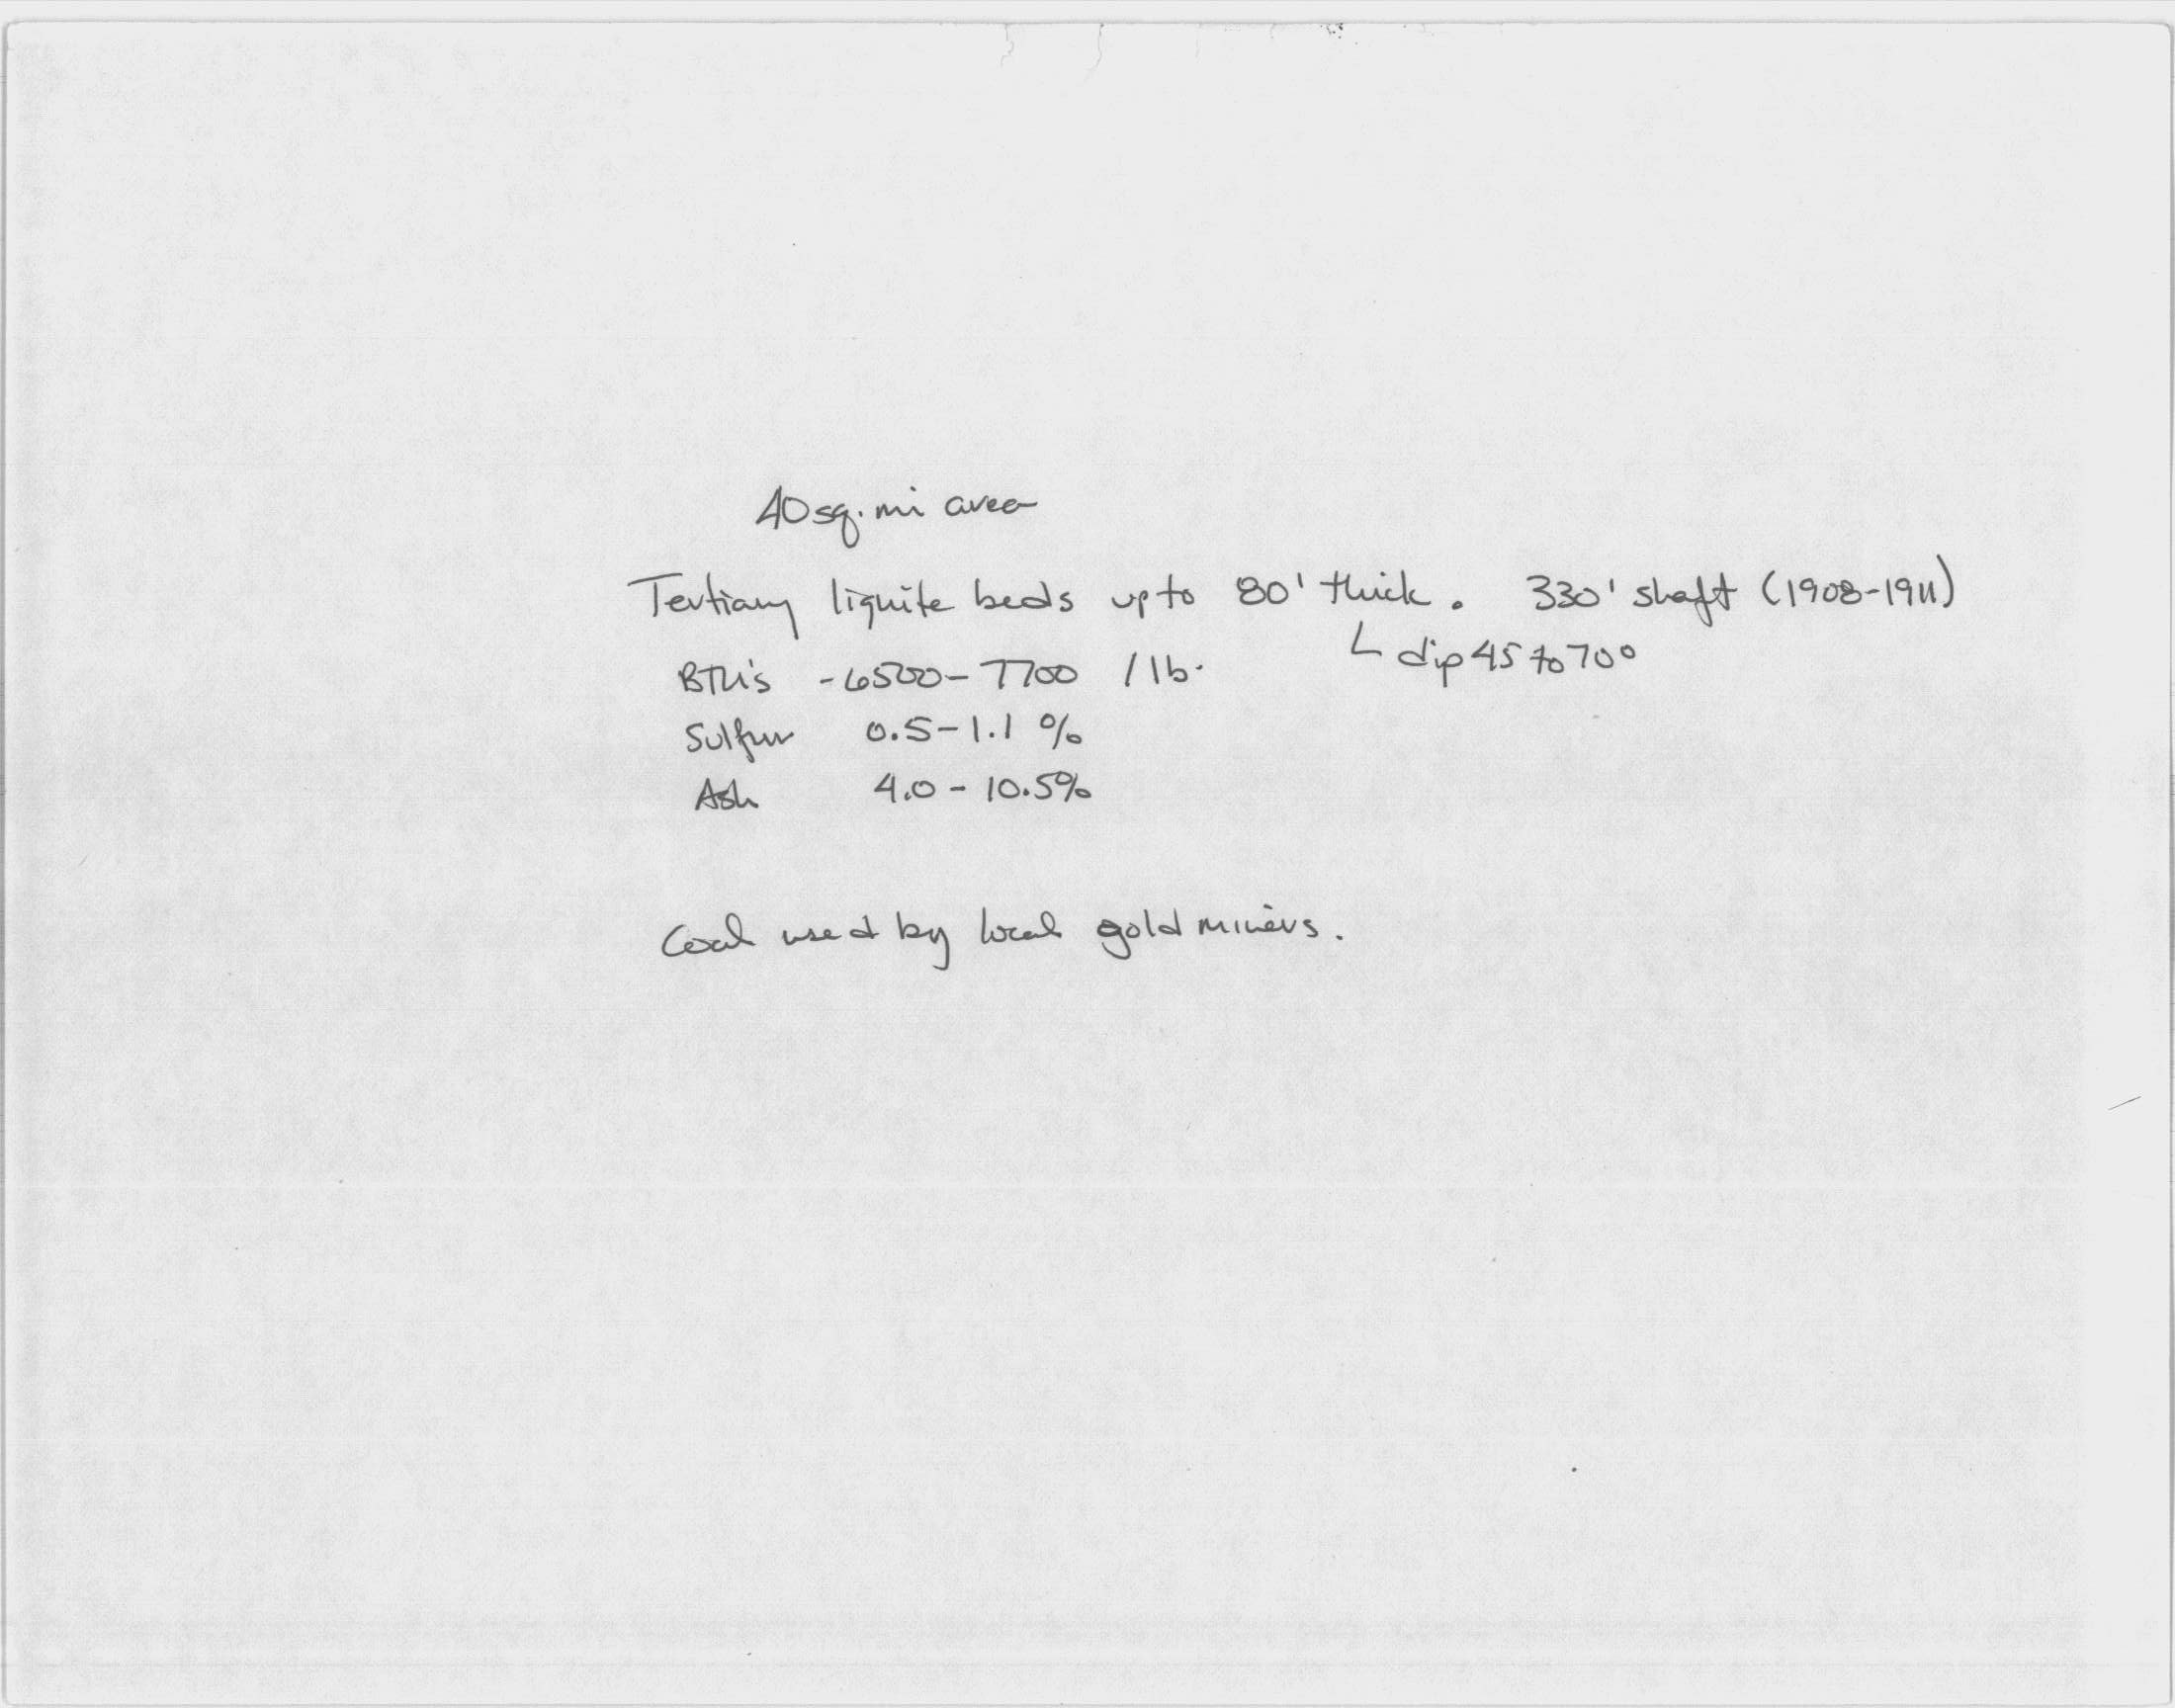 40 sq. mi area
Tertiary lignite beds up to 80' thick. 330' shaft (1908-1911)
└ dip 45 to 70°
BTU's - 6500 - 7700 / lb.
Sulfur 0.5 - 1.1 %
Ash 4.0 - 10.5%
Coal used by local gold miners.